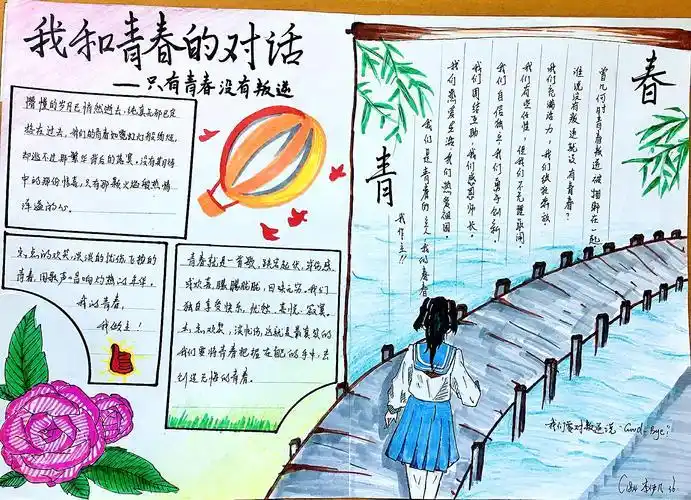 我和青春的对话
——只有青春没有叛逆
懵懂的岁月已悄然逝去,纯真无邪已定
格在过去,我们的青春如霓虹灯般绚烂,
却逃不过那繁华背后的落寞,没有期待
中的那份惊喜,只有那颗火焰般热情
洋溢的心。
点点的欢笑,淡淡的忧伤,飞扬的
青春,用歌声唱响灼热的年华。
我的青春,
我做主!
青春就是一首歌,跌宕起伏,或伤感
或欢喜,朦朦胧胧,回味无穷。我们
独自享受快乐、忧愁、喜悦、寂寞。
点点欢笑,淡忧伤,这就是最真实的
我们要将青春把握在自己的手中,去
创造无悔的青春。
青
春
曾几何时青春叛逆被捆绑在一起
谁说没有叛逆就没有青春?
我们充满活力,我们绽放
我们有些任性,但我们不无理取闹。
我们自信独立,我们勇于创新。
我们团结互助,我们感恩师长。
我们热爱生活,我们热爱祖国。
我们是青春的主人,我的青春
我作主!!
我们要对叛逆说“Good-Bye!”